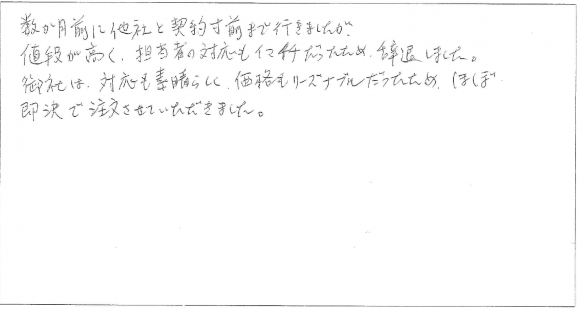 数か月前に他社と契約寸前まで行きましたが、
値段が高く、担当者の対応もイマイチだったため、辞退しました。
御社は、対応も素晴らしく、価格もリーズナブルだったため、ほぼ
即決で注文させていただきました。